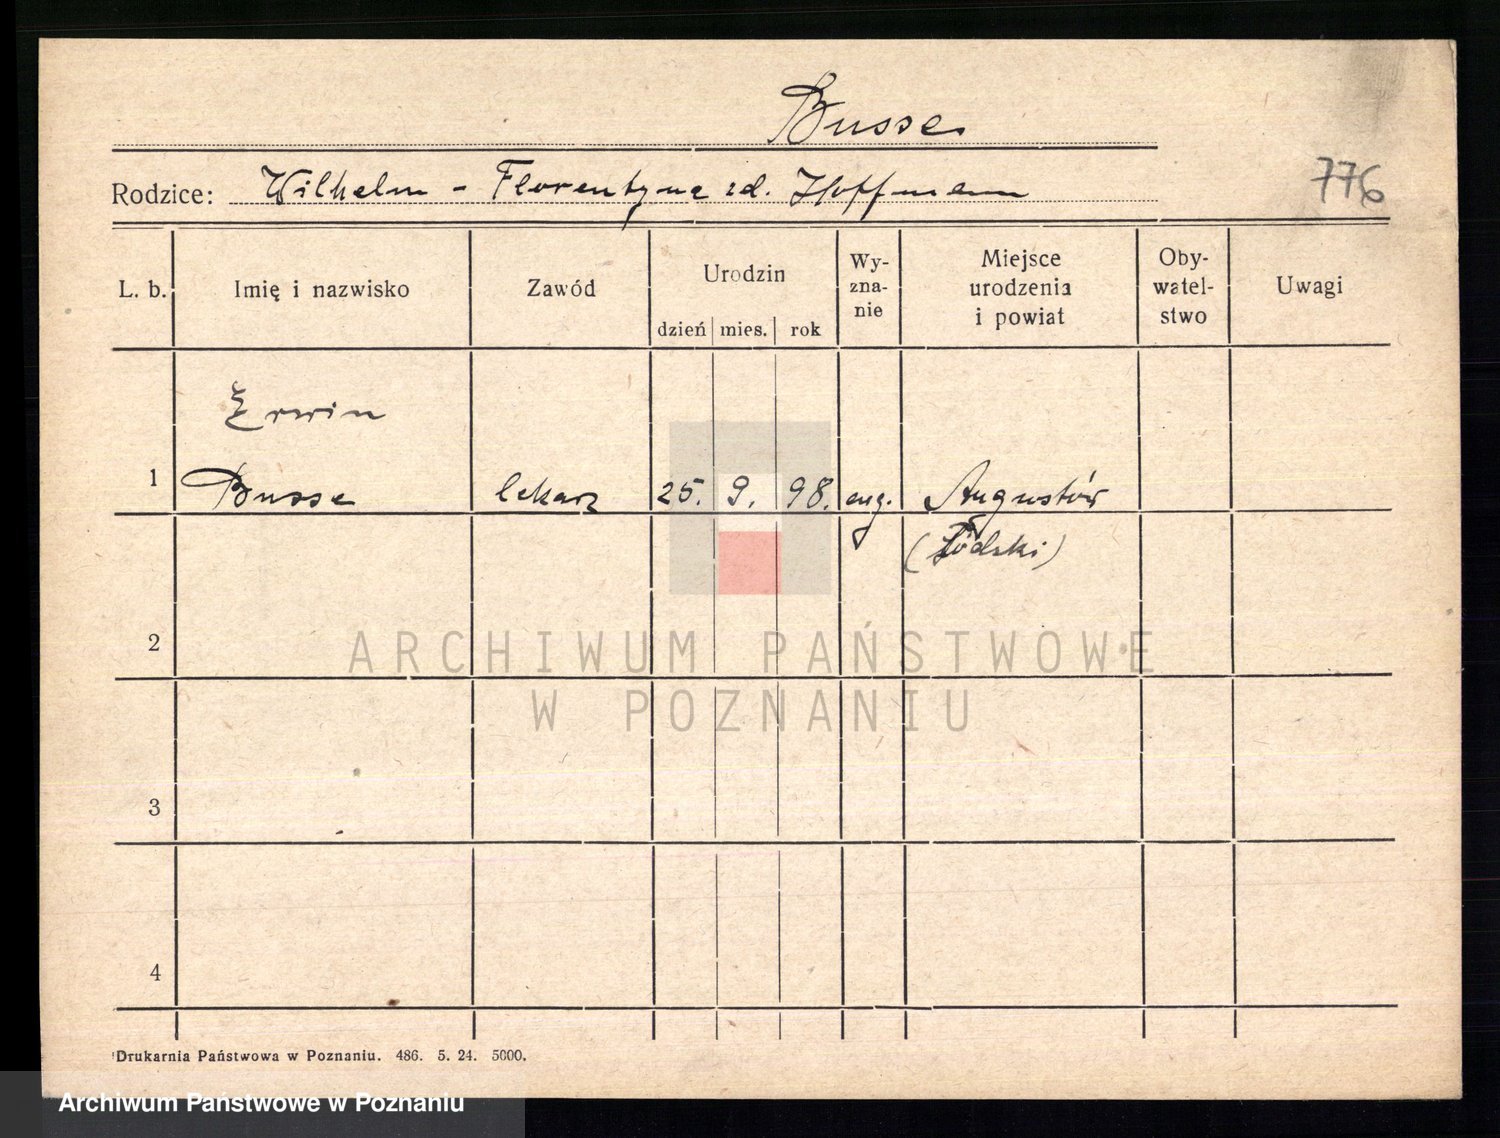 Busse
Rodzice: Wilhelm - Florentyna zd. Hoffmann
776
L. b. Imię i nazwisko Zawód Urodzin dzień mies. rok Wy-zna-nie Miejsce urodzenia i powiat Oby-watel-stwo Uwagi
Erwin
1 Busse lekarz 25. 9. 98. ewg. Augustów
(Łódzki)
2
ARCHIWUM PAŃSTWOWE
W POZNANIU
3
4
Drukarnia Państwowa w Poznaniu. 486. 5. 24. 5000.
Archiwum Państwowe w Poznaniu